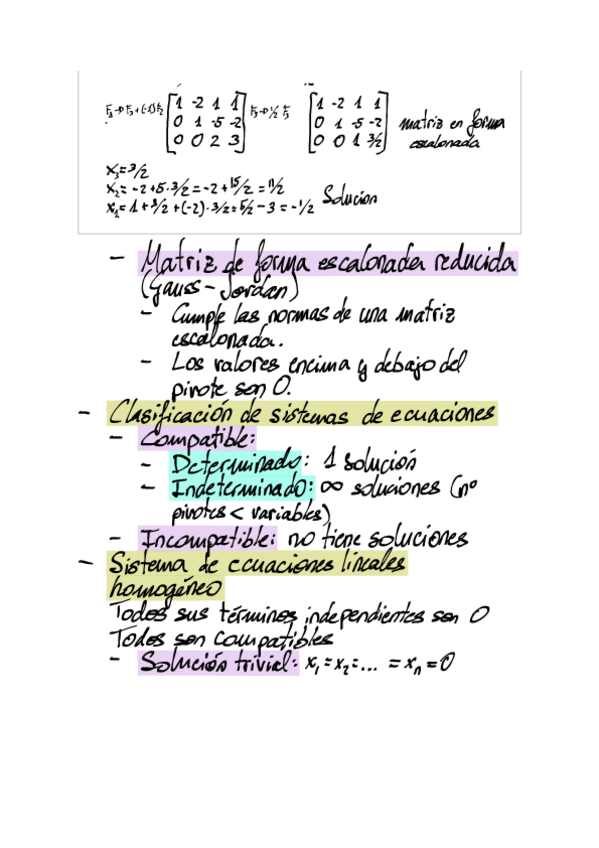 F₃→F₃+(-1)F₂ [1 -2 1 1] F₃→½ F₃ [1 -2 1 1]
[0 1 -5 -2] [0 1 -5 -2] matriz en forma
[0 0 2 3] [0 0 1 3/2] escalonada
x₃=3/2
x₂=-2+5·3/2=-2+15/2=11/2
x₁=1+3/2+(-2)·3/2=5/2-3=-1/2 Solucion
- Matriz de forma escalonada reducida
(Gauss-Jordan)
- Cumple las normas de una matriz
escalonada.
- Los valores encima y debajo del
pivote son 0.
- Clasificación de sistemas de ecuaciones
- Compatible:
- Determinado: 1 solución
- Indeterminado: ∞ soluciones (nº
pivotes < variables)
- Incompatible: no tiene soluciones
- Sistema de ecuaciones lineales
homogéneo
Todos sus términos independientes son 0
Todos son compatibles
- Solución trivial: x₁=x₂=... =xₙ=0